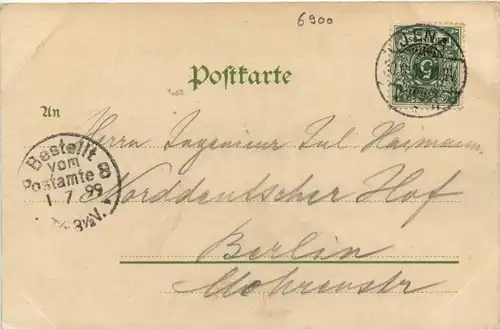 6900
JENA
5
Postkarte
An
Herrn Ingenieur Jul Heimann
Bestellt
vom
Postamte 8
1. 7. 99
3½N.
Norddeutscher Hof
Berlin
Mohrenstr